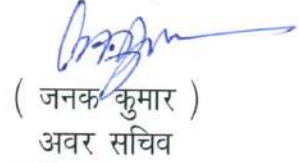 ( जनक कुमार )
अवर सचिव